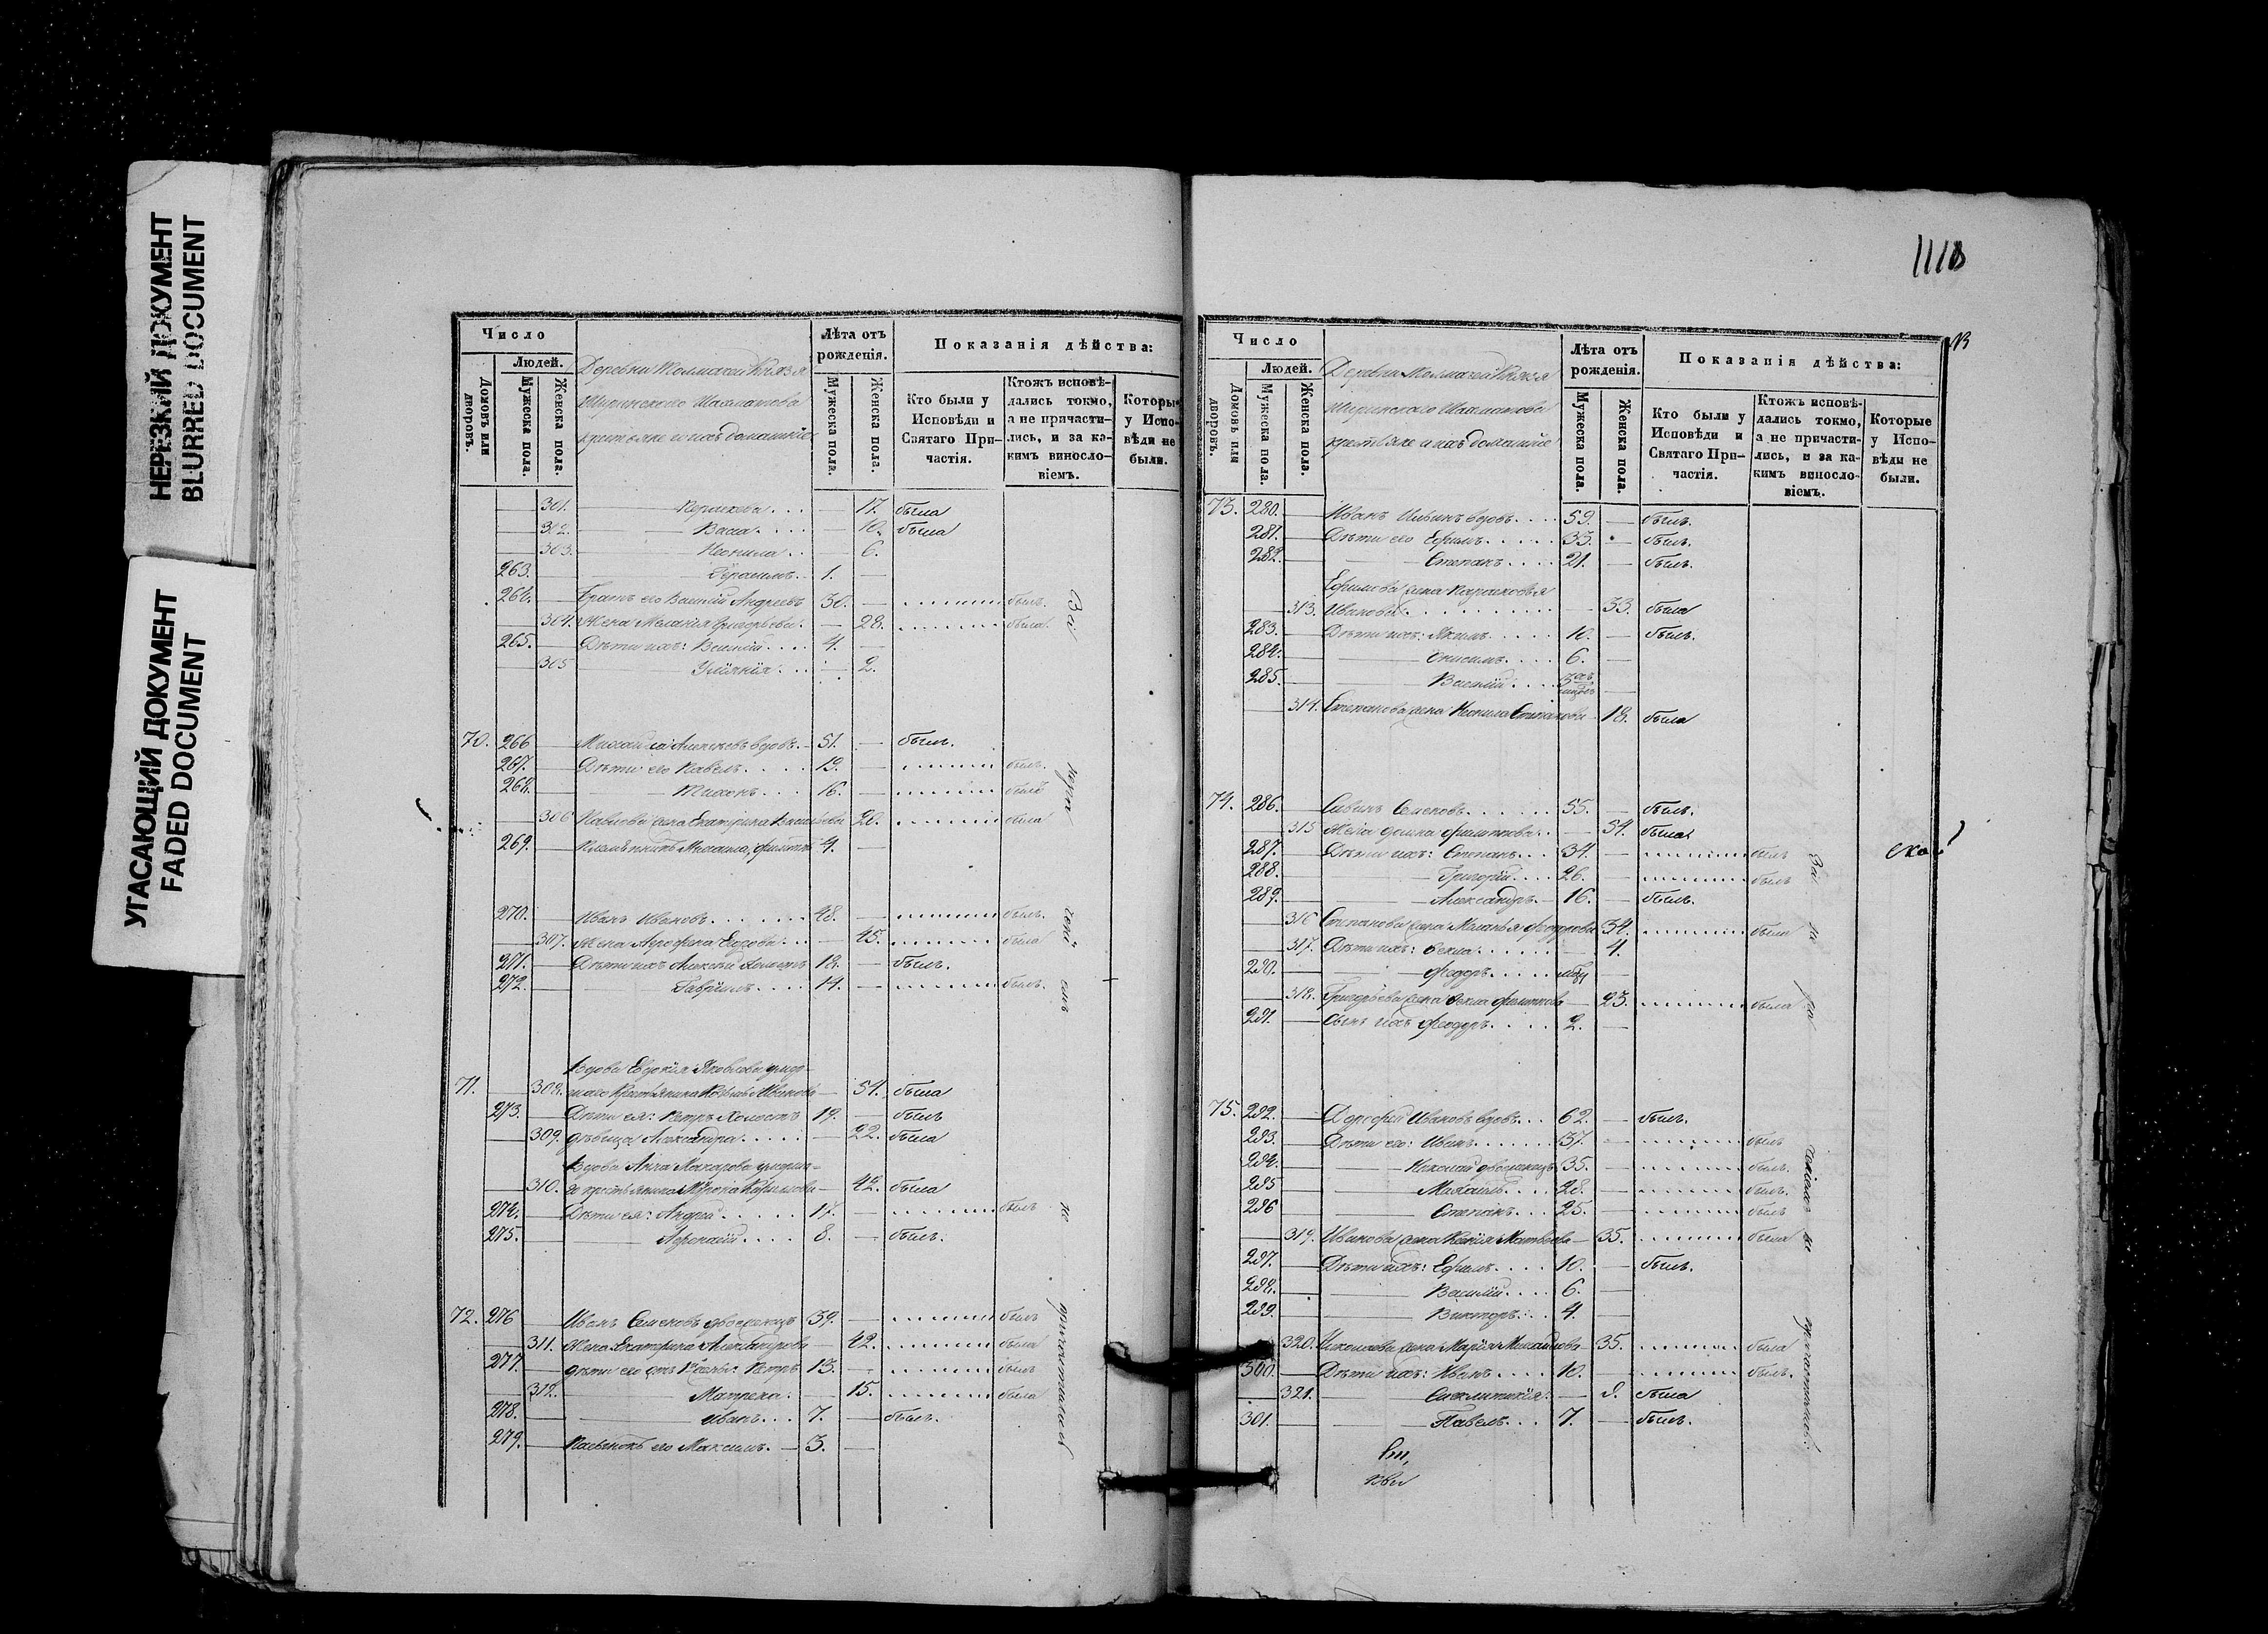 НЕРЕЗКИЙ ДОКУМЕНТ
BLURRED DOCUMENT
УГАСАЮЩИЙ ДОКУМЕНТ
FADED DOCUMENT
Число
Людей.
Домовъ или дворовъ.
Мужеска пола.
Женска пола.
Деревни Толмачей Князя
Ширинскаго Шахматова
крестьяне и ихъ домашніе
Лѣта отъ рожденія.
Мужеска пола.
Женска пола.
Показанія дѣйства:
Кто были у Исповѣди и Святаго Причастія.
Ктожъ исповѣ-
дались токмо,
а не причасти-
лись, и за ка-
кимъ винносло-
віемъ.
Которые
у Испо-
вѣди не
были.
301. Параскева . . . — 17. была
302. Васса . . . — 10. была
303. Неонила . . — 6.
263. Герасимъ. — 1. —
264. Братъ его Василій Андреевъ 30. — былъ.
304. Жена Меланія Григорьева. — 28. была.
265. Дѣти ихъ: Василій . . . . 4. —
305 Уліянія . . . — 2.
70. 266 Михаилъ Алексѣевъ вдовъ. — 51. — былъ.
267. Дѣти его Павелъ . . . . 19. — былъ.
268. Тихонъ . . . 16. — былъ
306 Павлова жена Екатерина Васильева 20. была
269. Племянникъ Михаила, Филиппъ 4. —
270. Иванъ Ивановъ . . . . 48. — былъ.
307. Жена Агрофена Егорова . . . — 45. была
271. Дѣти ихъ Алексѣй холостъ 18. — былъ.
272. Гавріилъ . . . . 14. — былъ.
Вдова Евдокія Яковлева умер-
71. 308. шаго крестьянина Козьмы Иванова — 51. была
273. Дѣти ея: Петръ холостъ 19. — былъ
309. дѣвица Александра . . . . — 22. была
Вдова Анна Макарова умерша-
310. го крестьянина Мирона Кирилова — 42. была
274. Дѣти ея: Андрей . . . . . 17. — былъ
275. Афанасій . . . . 8. — былъ.
72. 276 Иванъ Семеновъ двоеженецъ 39. — былъ
311. Жена Екатерина Александрова — 42. была
277. Дѣти его отъ 1й жены: Петръ 13. — былъ
312. Матрена . — 15. была
278. Иванъ . . . 7. — былъ.
279. Пасынокъ его Максимъ. — 3. —
За нера
сені
емъ
не
причащались
1118
Число
Людей.
Домовъ или дворовъ.
Мужеска пола.
Женска пола.
Деревни Толмачей Князя
Ширинскаго Шахматова
крестьяне и ихъ домашніе
Лѣта отъ рожденія.
Мужеска пола.
Женска пола.
Показанія дѣйства:
Кто были у Исповѣди и Святаго Причастія.
Ктожъ исповѣ-
дались токмо,
а не причасти-
лись, и за ка-
кимъ винносло-
віемъ.
Которые
у Испо-
вѣди не
были.
73. 280. Иванъ Ильинъ вдовъ . . . . 59. — былъ.
281. Дѣти его Ефимъ . . . . . 35. — былъ.
282. Степанъ . . . . 21. — былъ.
Ефимова жена Парасковья
313. Иванова . . . . . — 33. была
283. Дѣти ихъ: Якимъ . . . . 10. — былъ.
284. Онисимъ . . . . 6. —
285. Василій . . . . 3 —
314. Степанова жена Неонила Степанова — 18. была
74. 286. Савинъ Семеновъ . . . . . 55. — былъ.
315 Жена Домна Филиппова . . — 54. была
287. Дѣти ихъ: Степанъ . . . 34. — былъ
288. Григорій . . . . 26. — былъ
289. Александръ — 16. — былъ.
316 Степанова жена Маланья Феодорова 34. была
317. Дѣти ихъ: Фекла . . . . . — 4.
290. Феодоръ . . . . . —
318. Григорьева жена Фекла Филиппова — 23. была
291. Сынъ ихъ Феодоръ . . . . 2. —
75. 292. Дорофей Ивановъ вдовъ . . . 62. — былъ.
293. Дѣти его: Иванъ . . . . . 37. — былъ
294. Николай двоеженецъ 35. — былъ.
295 Михаилъ . . . . 28. — былъ.
296 Степанъ . . . . 25. — былъ
319. Иванова жена Ксенія Матвѣева — 35. была
297. Дѣти ихъ: Ефимъ . . . . 10. — былъ.
298. Василій . . . . 6. —
299. Викторъ . . . 4. —
320. Николаева жена Марія Михайлова — 35. была
300. Дѣти ихъ: Иванъ . . . . 10. — былъ.
321. Синклитикія . — 9. была
301. Павелъ . . . 7. — былъ.